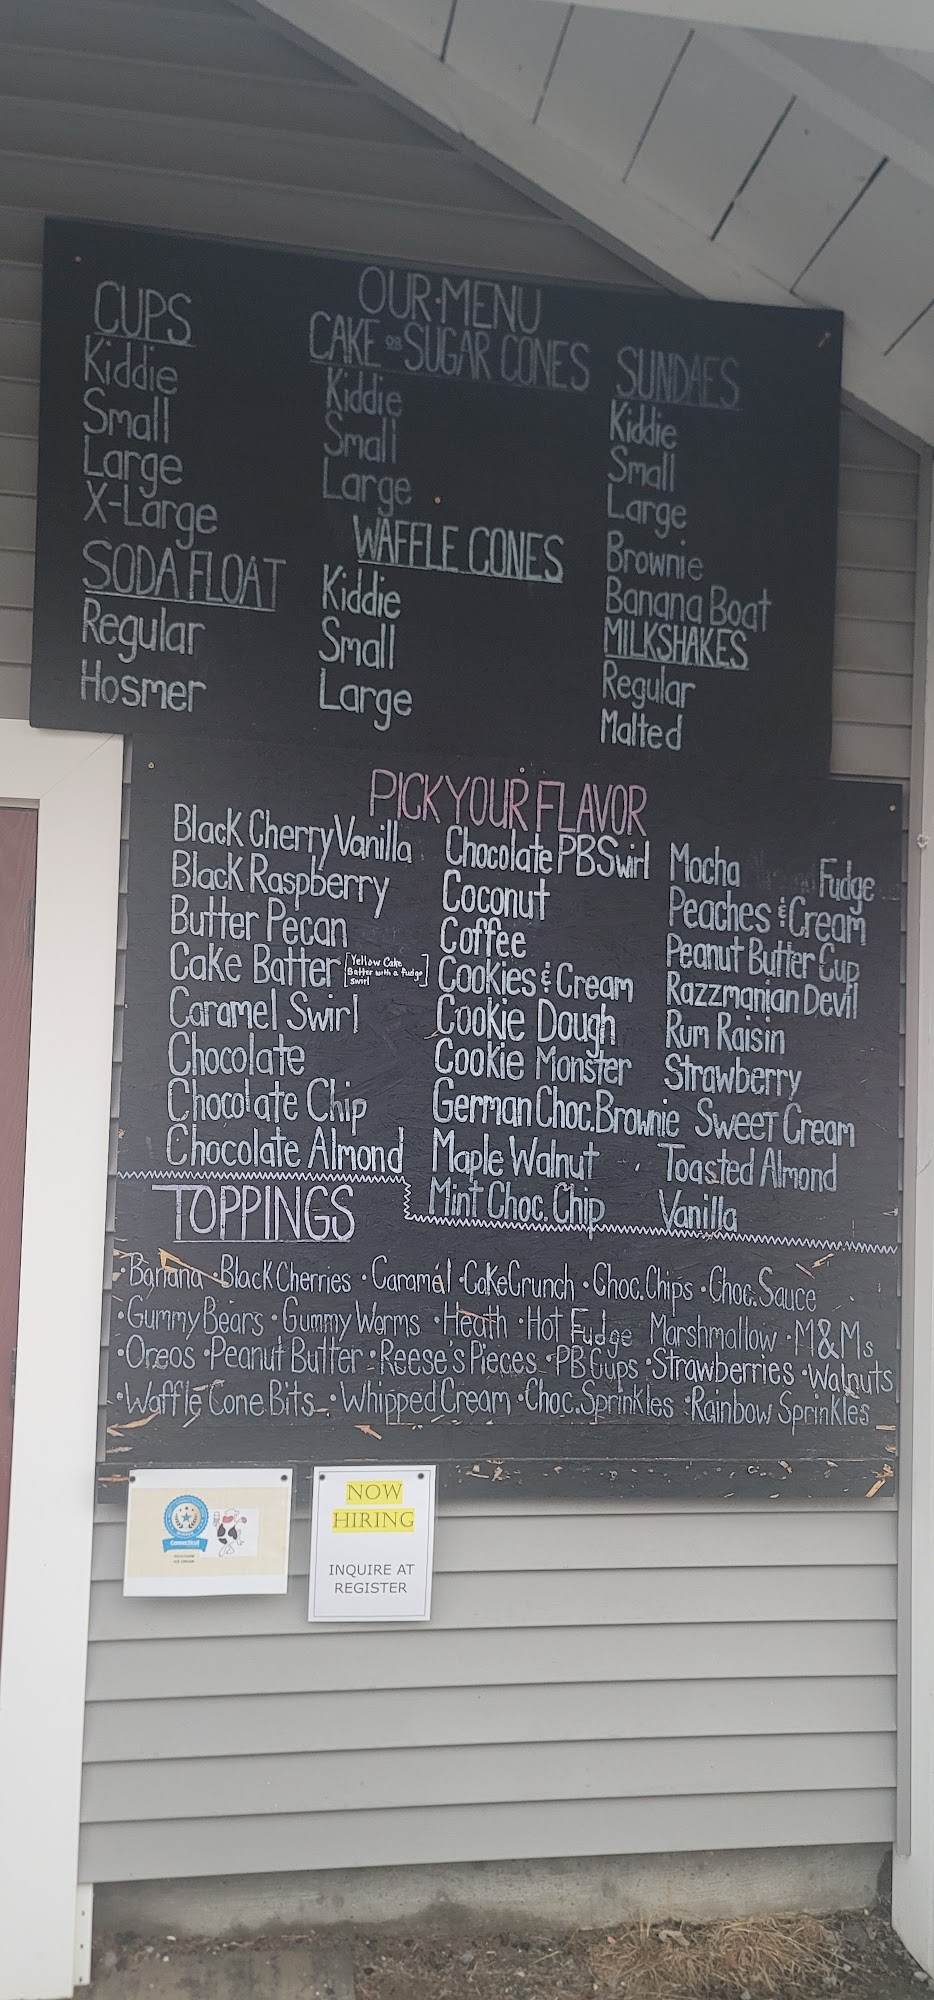 OUR MENU
CUPS
Kiddie
Small
Large
X-Large
SODA FLOAT
Regular
Hosmer
CAKE OR SUGAR CONES
Kiddie
Small
Large
WAFFLE CONES
Kiddie
Small
Large
SUNDAES
Kiddie
Small
Large
Brownie
Banana Boat
MILKSHAKES
Regular
Malted
PICK YOUR FLAVOR
Black Cherry Vanilla
Black Raspberry
Butter Pecan
Cake Batter [Yellow Cake
Batter with a fudge
swirl]
Caramel Swirl
Chocolate
Chocolate Chip
Chocolate Almond
Chocolate PB Swirl
Coconut
Coffee
Cookies & Cream
Cookie Dough
Cookie Monster
German Choc. Brownie
Maple Walnut
Mint Choc. Chip
Mocha Fudge
Peaches & Cream
Peanut Butter Cup
Razzmanian Devil
Rum Raisin
Strawberry
Sweet Cream
Toasted Almond
Vanilla
TOPPINGS
• Banana • Black Cherries • Caramel • Cake Crunch • Choc. Chips • Choc. Sauce
• Gummy Bears • Gummy Worms • Heath • Hot Fudge Marshmallow • M&Ms
• Oreos • Peanut Butter • Reese's Pieces • PB Cups • Strawberries • Walnuts
• Waffle Cone Bits • Whipped Cream • Choc. Sprinkles • Rainbow Sprinkles
Connecticut
NOW
HIRING
INQUIRE AT
REGISTER